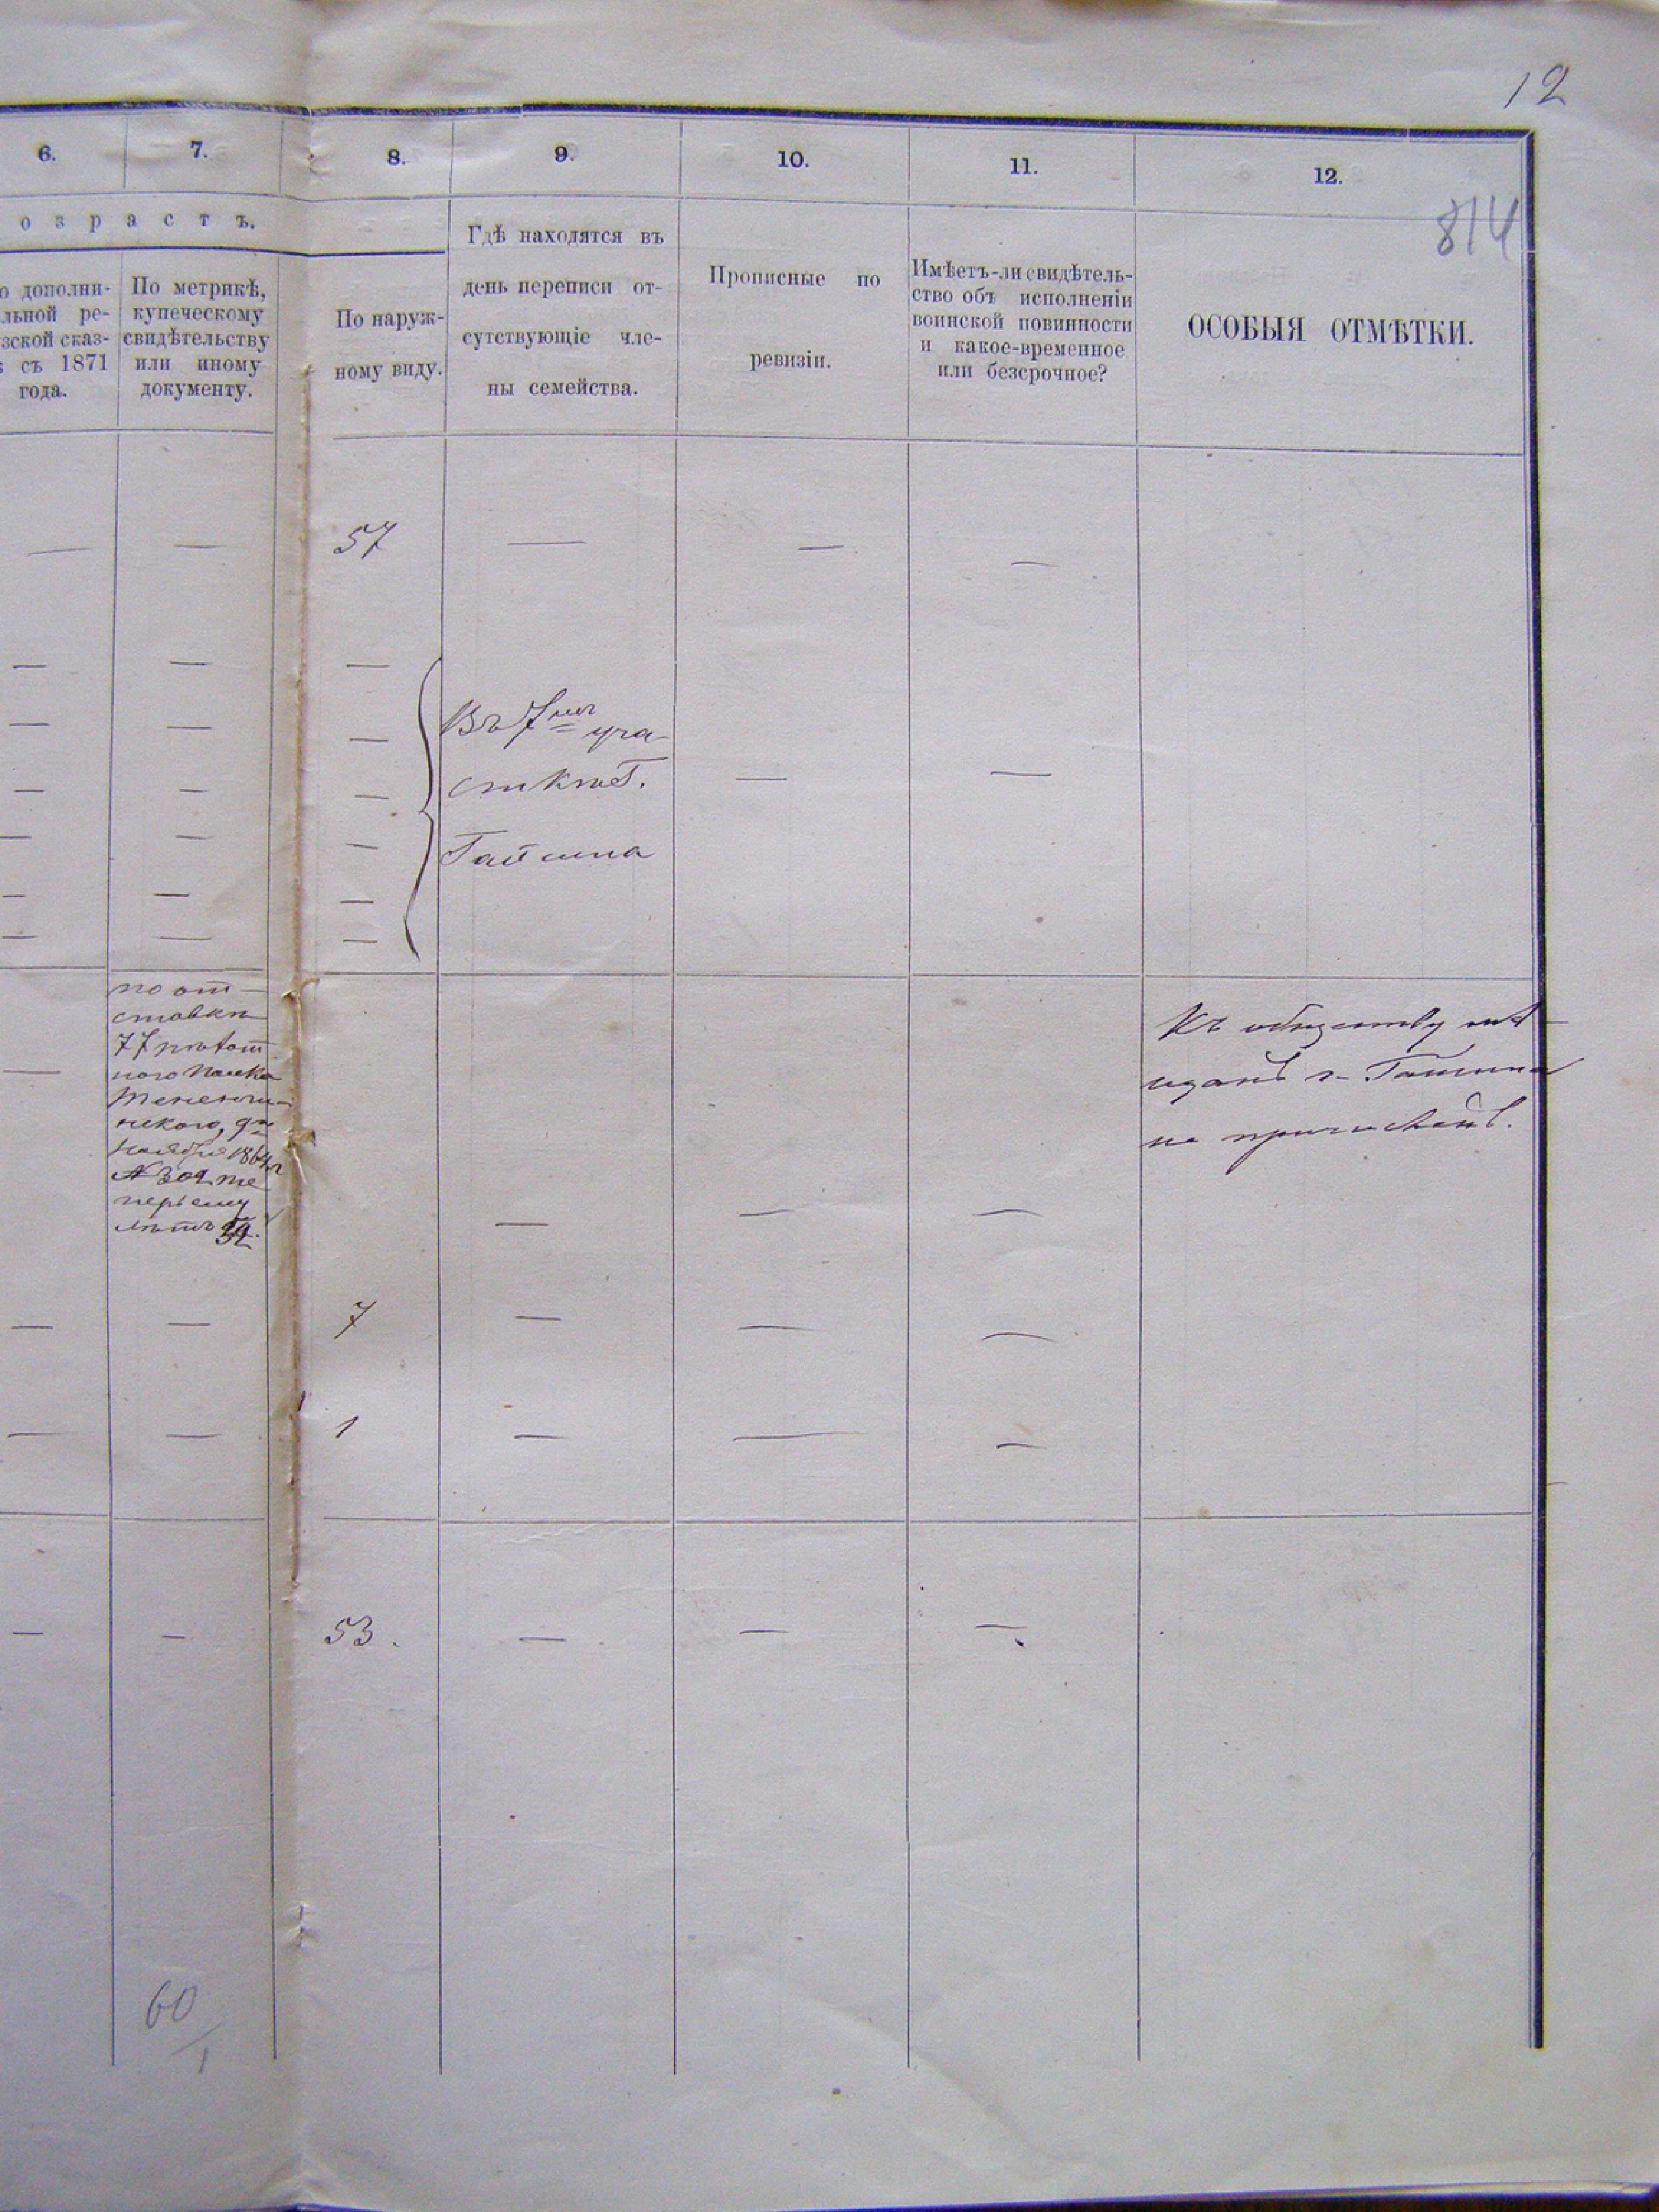 12
6. 7. 8. 9. 10. 11. 12.
814
озрастъ.
о дополни-
льной ре-
зской сказ-
ѣ съ 1871
года.
По метрикѣ,
купеческому
свидѣтельству
или иному
документу.
По наруж-
ному виду.
Гдѣ находятся въ
день переписи от-
сутствующіе чле-
ны семейства.
Прописные по
ревизіи.
Имѣетъ-ли свидѣтель-
ство объ исполненіи
воинской повинности
и какое-временное
или безсрочное?
ОСОБЫЯ ОТМѢТКИ.
— — 57 — — —
— — —
— — —
— — —
— — —
— — —
— — —
Въ 7мъ уча-
сткѣ Г.
Гайсина
— —
—
по от-
ставкѣ
77 пѣхот
наго полка
Тенгин-
скаго, 9го
Ноября 1864 г
№ 302 те
перь ему
лѣтъ 52
— — —
Къ обществу мѣ-
щанъ г. Гайсина
не причисленъ.
— — 7 — — —
— — 1 — — —
— — 53. — — —
60
1